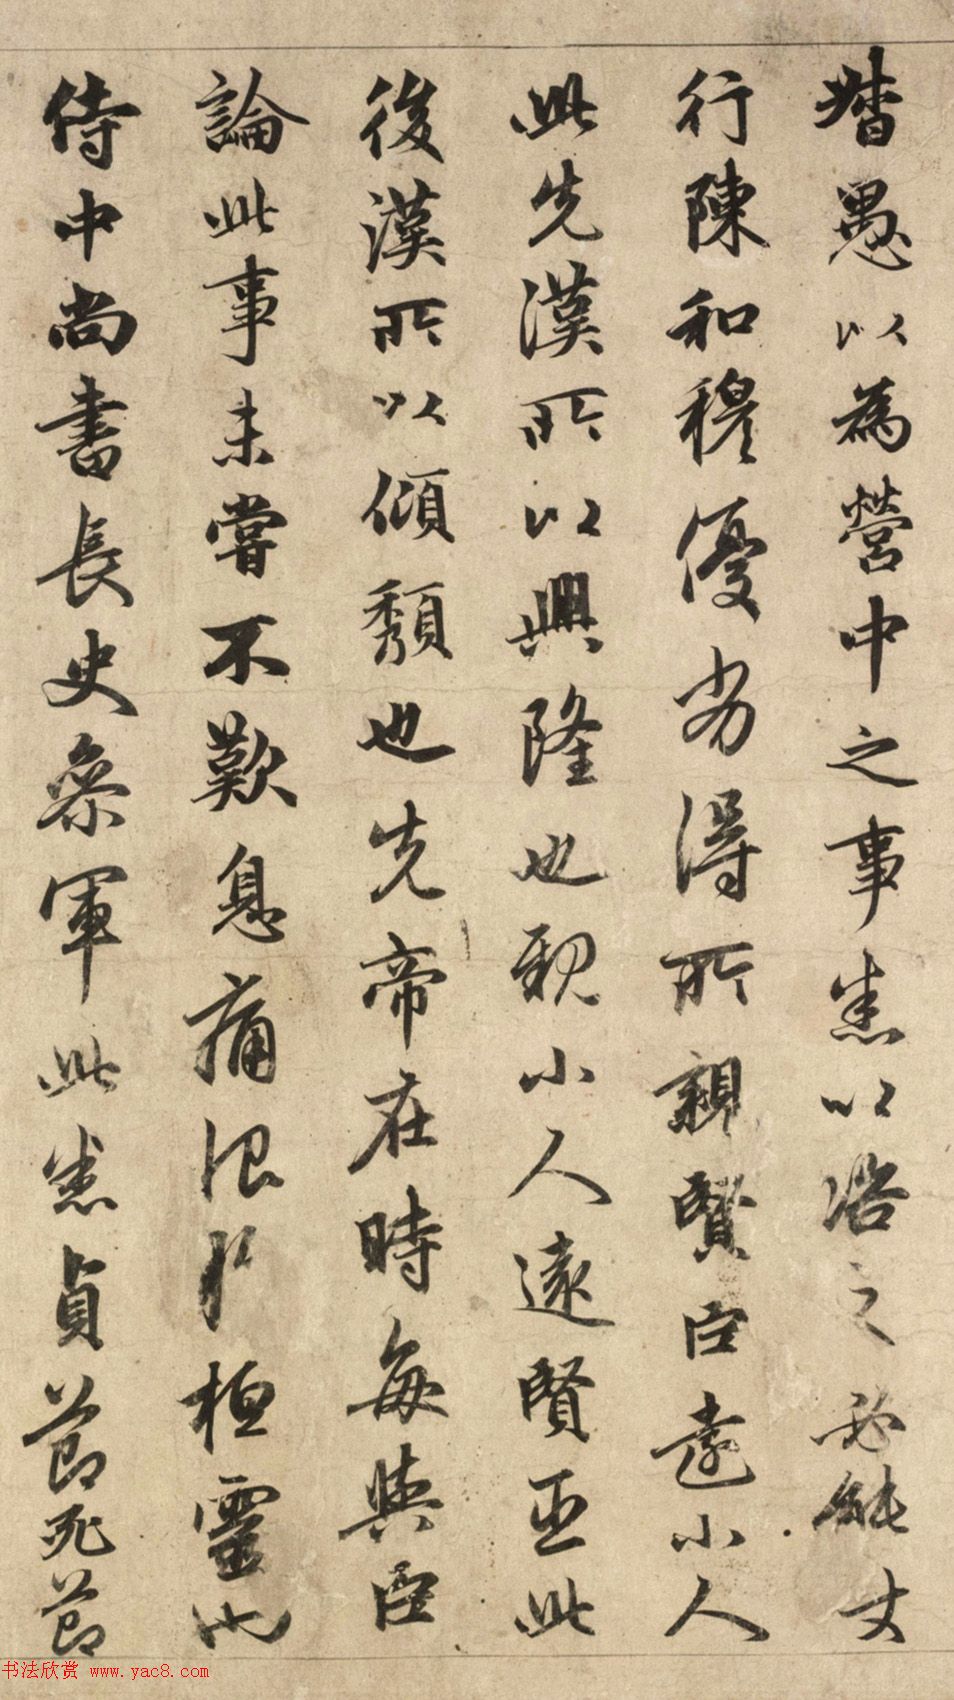 督愚以為營中之事悉以咨之必能使
行陳和穆優劣得所親賢臣遠小人
此先漢所以興隆也親小人遠賢臣此
後漢所以傾頽也先帝在時每與臣
論此事未嘗不歎息痛恨於桓靈也
侍中尚書長史參軍此悉貞節死節
书法欣赏 www.yac8.com